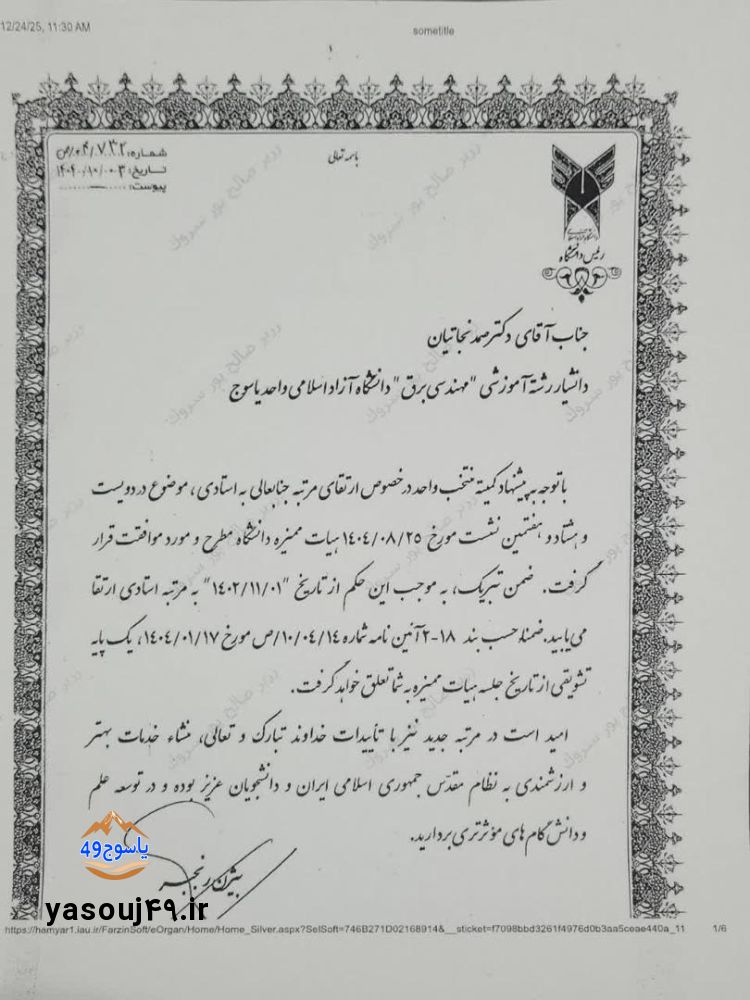 12/24/25, 11:30 AM
sometitle
باسمه تعالی
شماره: ۰۴/۷۳۲/ص
تاریخ: ۱۴۰۴/۱۰/۰۳
پیوست:
رئیس دانشگاه
جناب آقای دکتر صمد نجاتیان
دانشیار رشته آموزشی "مهندسی برق" دانشگاه آزاد اسلامی واحد یاسوج
با توجه به پیشنهاد کمیته منتخب واحد در خصوص ارتقای مرتبه جنابعالی به استادی، موضوع در دویست
و هشتاد و هفتمین نشست مورخ ۱۴۰۴/۰۸/۲۵ هیات ممیزه دانشگاه مطرح و مورد موافقت قرار
گرفت. ضمن تبریک، به موجب این حکم از تاریخ "۱۴۰۲/۱۱/۰۱" به مرتبه استادی ارتقا
می‌یابید. ضمناً حسب بند ۱۸-۲ آئین نامه شماره ۱۰/۰۴/۱۴/ص مورخ ۱۴۰۴/۰۱/۱۷، یک پایه
تشویقی از تاریخ جلسه هیات ممیزه به شما تعلق خواهد گرفت.
امید است در مرتبه جدید نیز با تأییدات خداوند تبارک و تعالی، منشاء خدمات بهتر
و ارزشمندی به نظام مقدس جمهوری اسلامی ایران و دانشجویان عزیز بوده و در توسعه علم
و دانش گام های مؤثرتری بردارید.
بیژن رنجبر
یاسوج49
yasouj۴۹.ir
https://hamyar1.iau.ir/FarzinSoft/eOrgan/Home/Home_Silver.aspx?SelSoft=746B271D02168914&__sticket=f7098bbd3261f4976d0b3aa5ceae440a_11
1/6